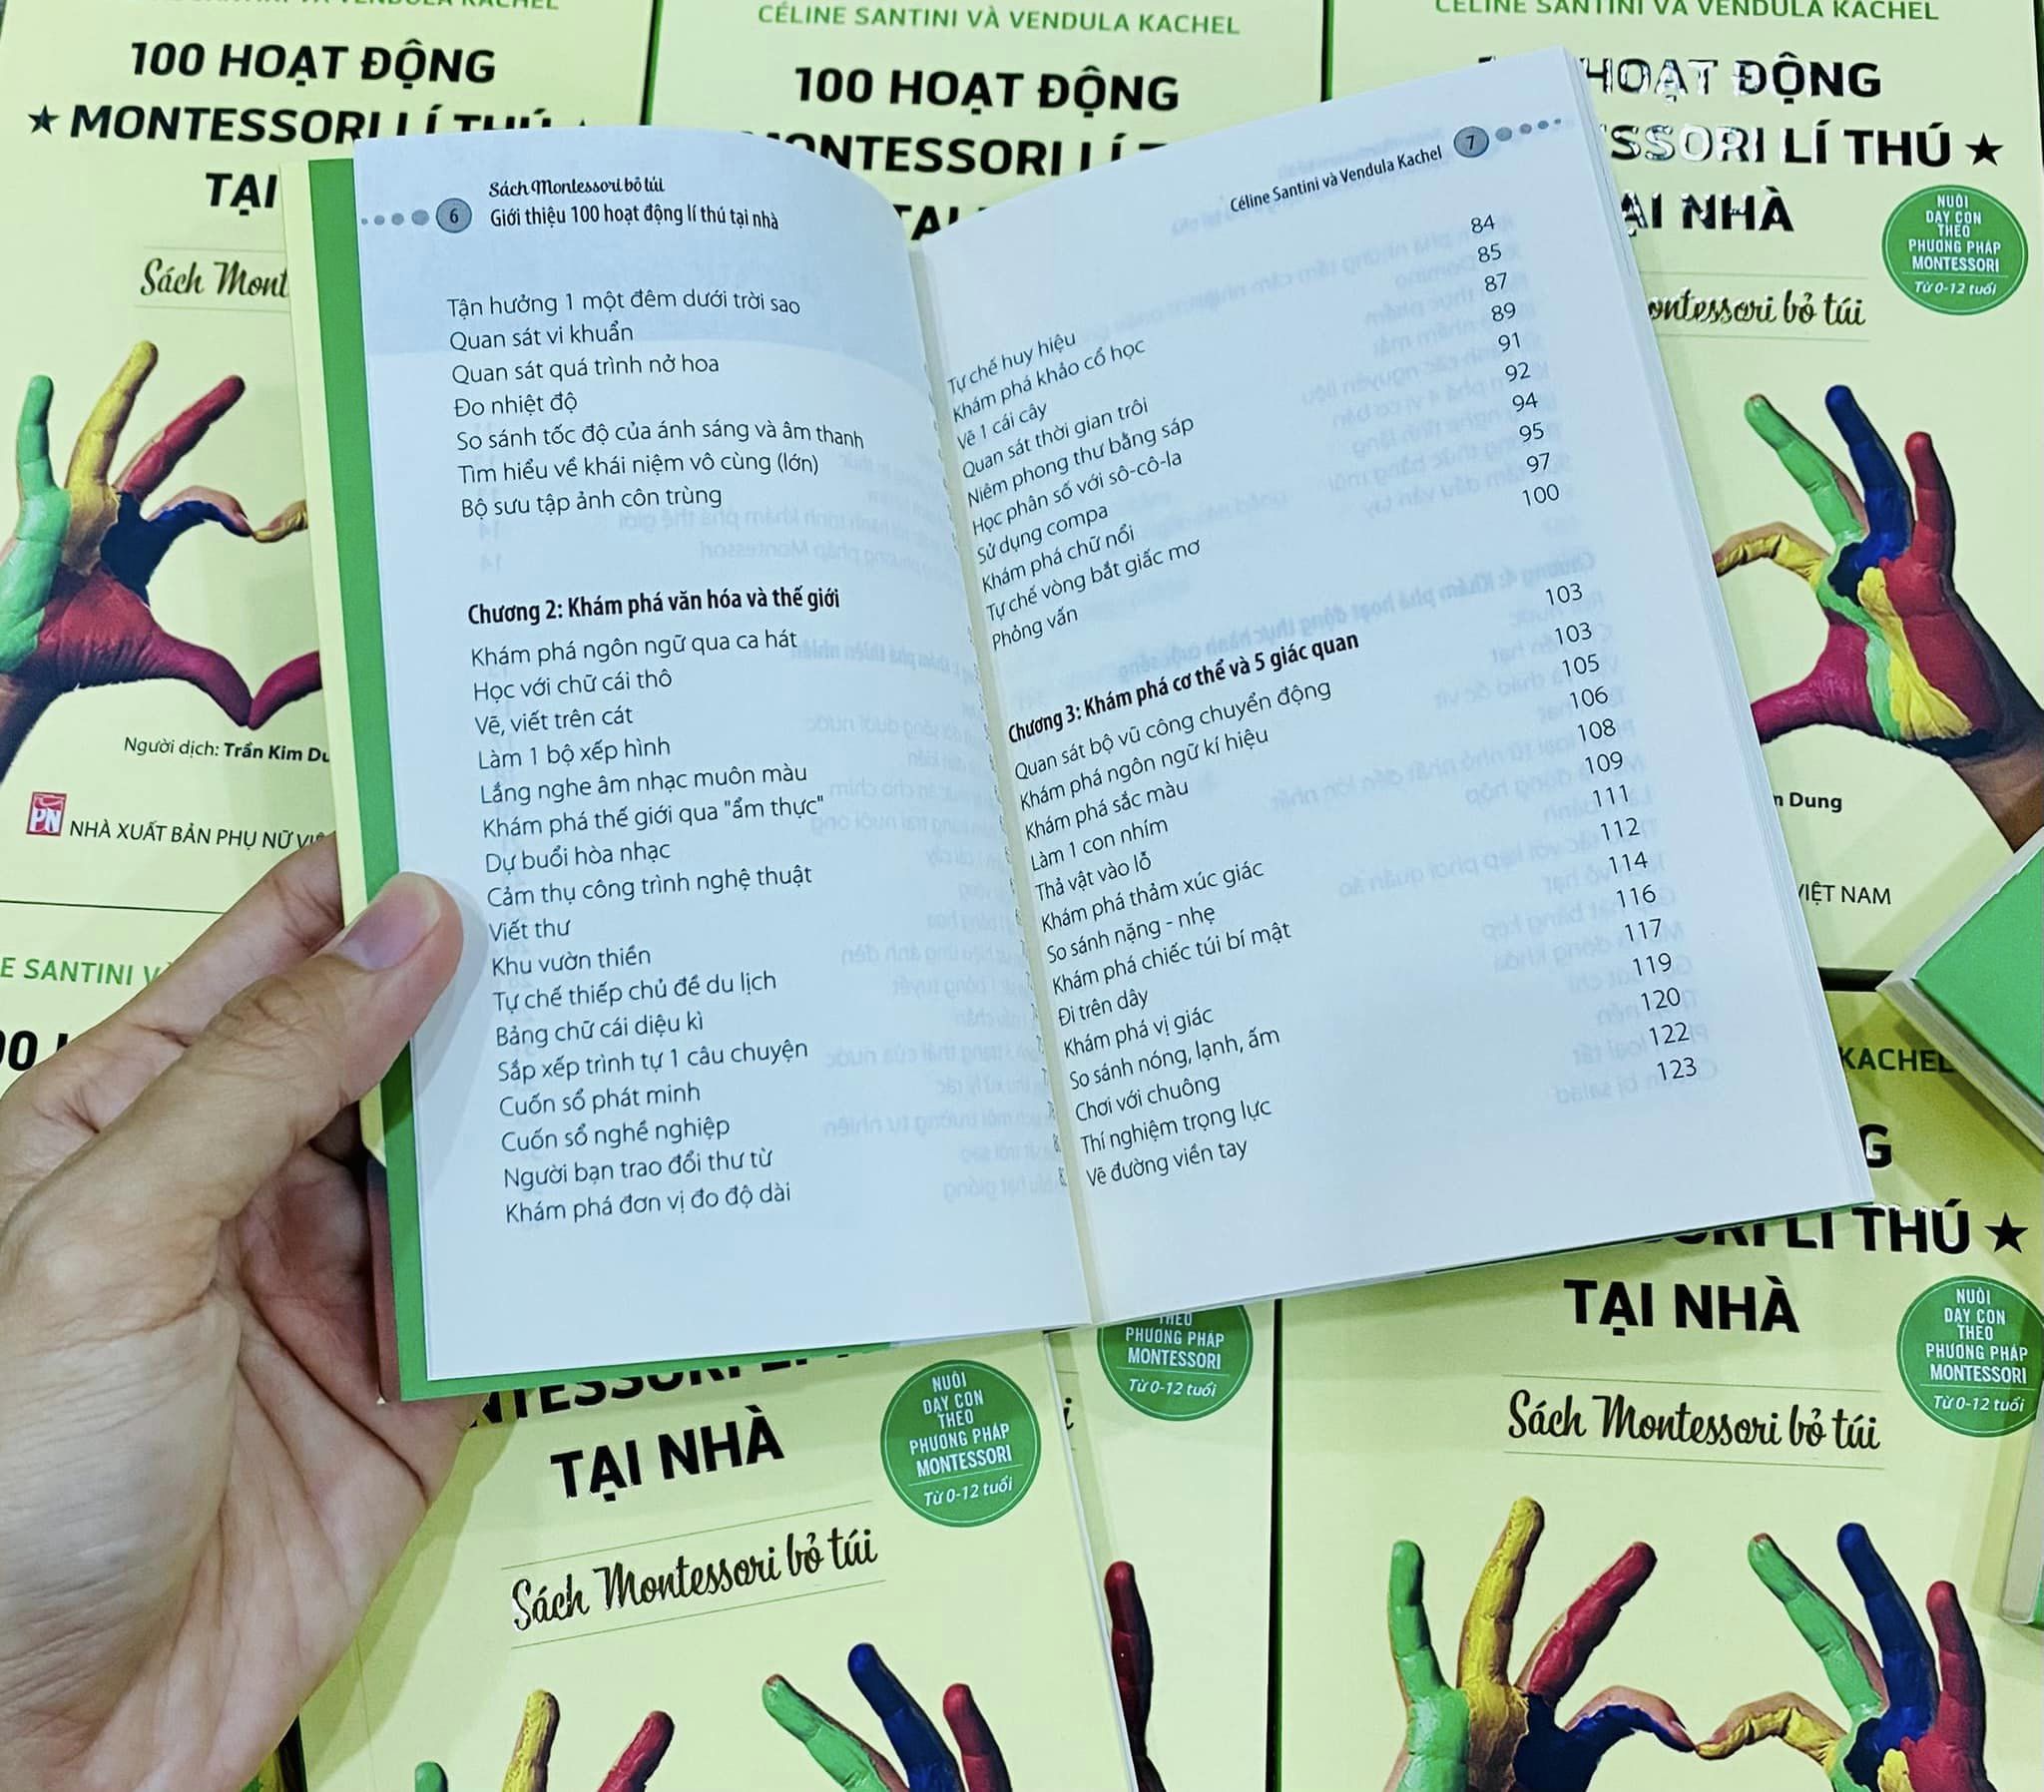 CÉLINE SANTINI VÀ VENDULA KACHEL
100 HOẠT ĐỘNG
★ MONTESSORI LÍ THÚ
TẠI
Sách
Người dịch: Trần Kim
PN NHÀ XUẤT BẢN PHỤ NỮ
CÉLINE SANTINI VÀ VENDULA KACHEL
100 HOẠT ĐỘNG
CÉLINE SANTINI VÀ VENDULA KACHEL
HOẠT ĐỘNG
LÍ THÚ ★
NHÀ
NUÔI
DẠY CON
THEO
PHƯƠNG PHÁP
MONTESSORI
Từ 0-12 tuổi
bỏ túi
Dung
VIỆT NAM
6
Sách Montessori bỏ túi
Giới thiệu 100 hoạt động lí thú tại nhà
Tận hưởng 1 một đêm dưới trời sao
Quan sát vi khuẩn
Quan sát quá trình nở hoa
Đo nhiệt độ
So sánh tốc độ của ánh sáng và âm thanh
Tìm hiểu về khái niệm vô cùng (lớn)
Bộ sưu tập ảnh côn trùng
Chương 2: Khám phá văn hóa và thế giới
Khám phá ngôn ngữ qua ca hát
Học với chữ cái thô
Vẽ, viết trên cát
Làm 1 bộ xếp hình
Lắng nghe âm nhạc muôn màu
Khám phá thế giới qua "ẩm thực"
Dự buổi hòa nhạc
Cảm thụ công trình nghệ thuật
Viết thư
Khu vườn thiền
Tự chế thiếp chủ đề du lịch
Bảng chữ cái diệu kì
Sắp xếp trình tự 1 câu chuyện
Cuốn sổ phát minh
Cuốn sổ nghề nghiệp
Người bạn trao đổi thư từ
Khám phá đơn vị đo độ dài
Céline Santini và Vendula Kachel 7
Tự chế huy hiệu 84
Khám phá khảo cổ học 85
Vẽ 1 cái cây 87
Quan sát thời gian trôi 89
Niêm phong thư bằng sáp 91
Học phân số với sô-cô-la 92
Sử dụng compa 94
Khám phá chữ nổi 95
Tự chế vòng bắt giấc mơ 97
Phỏng vấn 100
Chương 3: Khám phá cơ thể và 5 giác quan 103
Quan sát bộ vũ công chuyển động 103
Khám phá ngôn ngữ kí hiệu 105
Khám phá sắc màu 106
Làm 1 con nhím 108
Thả vật vào lỗ 109
Khám phá thảm xúc giác 111
So sánh nặng - nhẹ 112
Khám phá chiếc túi bí mật 114
Đi trên dây 116
Khám phá vị giác 117
So sánh nóng, lạnh, ấm 119
Chơi với chuông 120
Thí nghiệm trọng lực 122
Vẽ đường viền tay 123
SANTINI
TẠI NHÀ
NUÔI
DẠY CON
THEO
PHƯƠNG PHÁP
MONTESSORI
Từ 0-12 tuổi
Sách Montessori bỏ túi
THEO
PHƯƠNG PHÁP
MONTESSORI
Từ 0-12 tuổi
KACHEL
LÍ THÚ ★
TẠI NHÀ
NUÔI
DẠY CON
THEO
PHƯƠNG PHÁP
MONTESSORI
Từ 0-12 tuổi
Sách Montessori bỏ túi